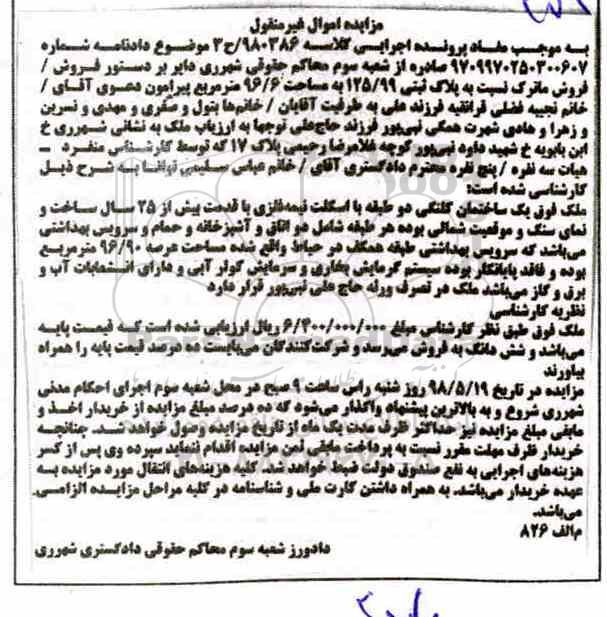 مزایده اموال غیرمنقول
به موجب مفاد پرونده اجرایی کلاسه ۹۸۰۳۸۶/ح۳ موضوع دادنامه شماره
۹۷۰۹۹۷۰۲۵۰۳۰۰۶۰۷ صادره از شعبه سوم محاکم حقوقی شهرری دایر بر دستور فروش /
فروش ماترک نسبت به پلاک ثبتی ۱۲۵/۹۹ به مساحت ۹۶/۶ مترمربع پیرامون دعوی آقای /
خانم نجیبه فضلی قراتقیه فرزند علی به طرفیت آقایان / خانم‌ها بتول و صغری و مهدی و نسرین
و زهرا و هادی شهرت همگی نبی‌پور فرزند حاج‌علی توجها به ارزیاب ملک به نشانی شهرری خ
ابن بابویه خ شهید داود نبی‌پور کوچه غلامرضا رحیمی پلاک ۱۷ که توسط کارشناس منفرد -
هیات سه نفره / پنج نفره محترم دادگستری آقای / خانم عباس سلیمی توانا به شرح ذیل
کارشناسی شده است:
ملک فوق یک ساختمان کلنگی دو طبقه با اسکلت نیمه‌فلزی با قدمت بیش از ۲۵ سال ساخت و
نمای سنگ و موقعیت شمالی بوده هر طبقه شامل دو اتاق و آشپزخانه و حمام و سرویس بهداشتی
می‌باشد که سرویس بهداشتی طبقه همکف در حیاط واقع شده مساحت عرصه ۹۶/۹۰ مترمربع
بوده و فاقد پایانکار بوده سیستم گرمایش بخاری و سرمایش کولر آبی و دارای انشعابات آب و
برق و گاز می‌باشد ملک در تصرف ورثه حاج علی نبی‌پور قرار دارد
نظریه کارشناسی
ملک فوق طبق نظر کارشناسی مبلغ ۶/۳۰۰/۰۰۰/۰۰۰ ریال ارزیابی شده است که قیمت پایه
می‌باشد و شش دانگ به فروش می‌رسد و شرکت‌کنندگان می‌بایست ده درصد قیمت پایه را همراه
بیاورند
مزایده در تاریخ ۹۸/۵/۱۹ روز شنبه راس ساعت ۹ صبح در محل شعبه سوم اجرای احکام مدنی
شهرری شروع و به بالاترین پیشنهاد واگذار می‌شود که ده درصد مبلغ مزایده از خریدار اخذ و
مابقی مبلغ مزایده نیز حداکثر ظرف مدت یک ماه از تاریخ مزایده وصول خواهد شد. چنانچه
خریدار ظرف مهلت مقرر نسبت به پرداخت مابقی ثمن مزایده اقدام ننماید سپرده وی پس از کسر
هزینه‌های اجرایی به نفع صندوق دولت ضبط خواهد شد. کلیه هزینه‌های انتقال مورد مزایده به
عهده خریدار می‌باشد. به همراه داشتن کارت ملی و شناسنامه در کلیه مراحل مزایده الزامی
می‌باشد.
م‌الف ۸۲۶
دادورز شعبه سوم محاکم حقوقی دادگستری شهرری